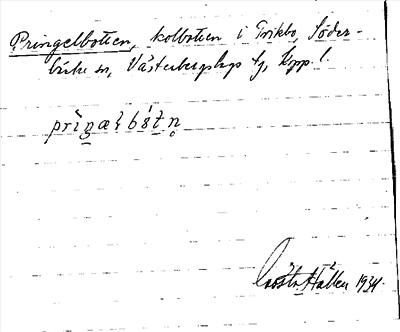 Pringelbotten, kolbotten i Vikbo, Söder-
bärke sn, Västerbergslags fg, Kopp. l.
prìŋæƚbót̠n̥
Gösta Hållen 1934.